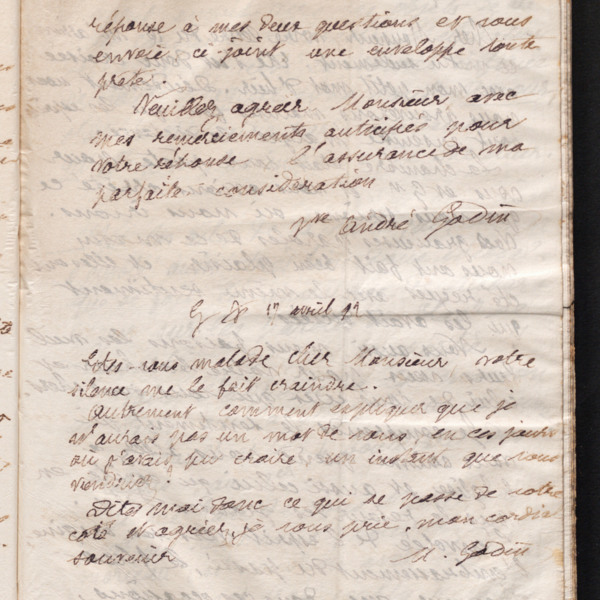 réponse à mes deux questions et vous
envoie ci-joint une enveloppe toute
prête.
Veuillez agréer Monsieur avec
mes remerciements anticipés pour
votre réponse l'assurance de ma
parfaite considération
Vve André Godin
17 avril 92
Etes-vous malade cher Monsieur, votre
silence me le fait craindre.
Autrement comment expliquer que je
n'aurais pas un mot de vous en ces jours
où j'avais pu croire un instant que vous
viendriez?
Dites moi donc ce qui se passe de votre
côté et agréez, je vous prie, mon cordial
souvenir
M. Godin